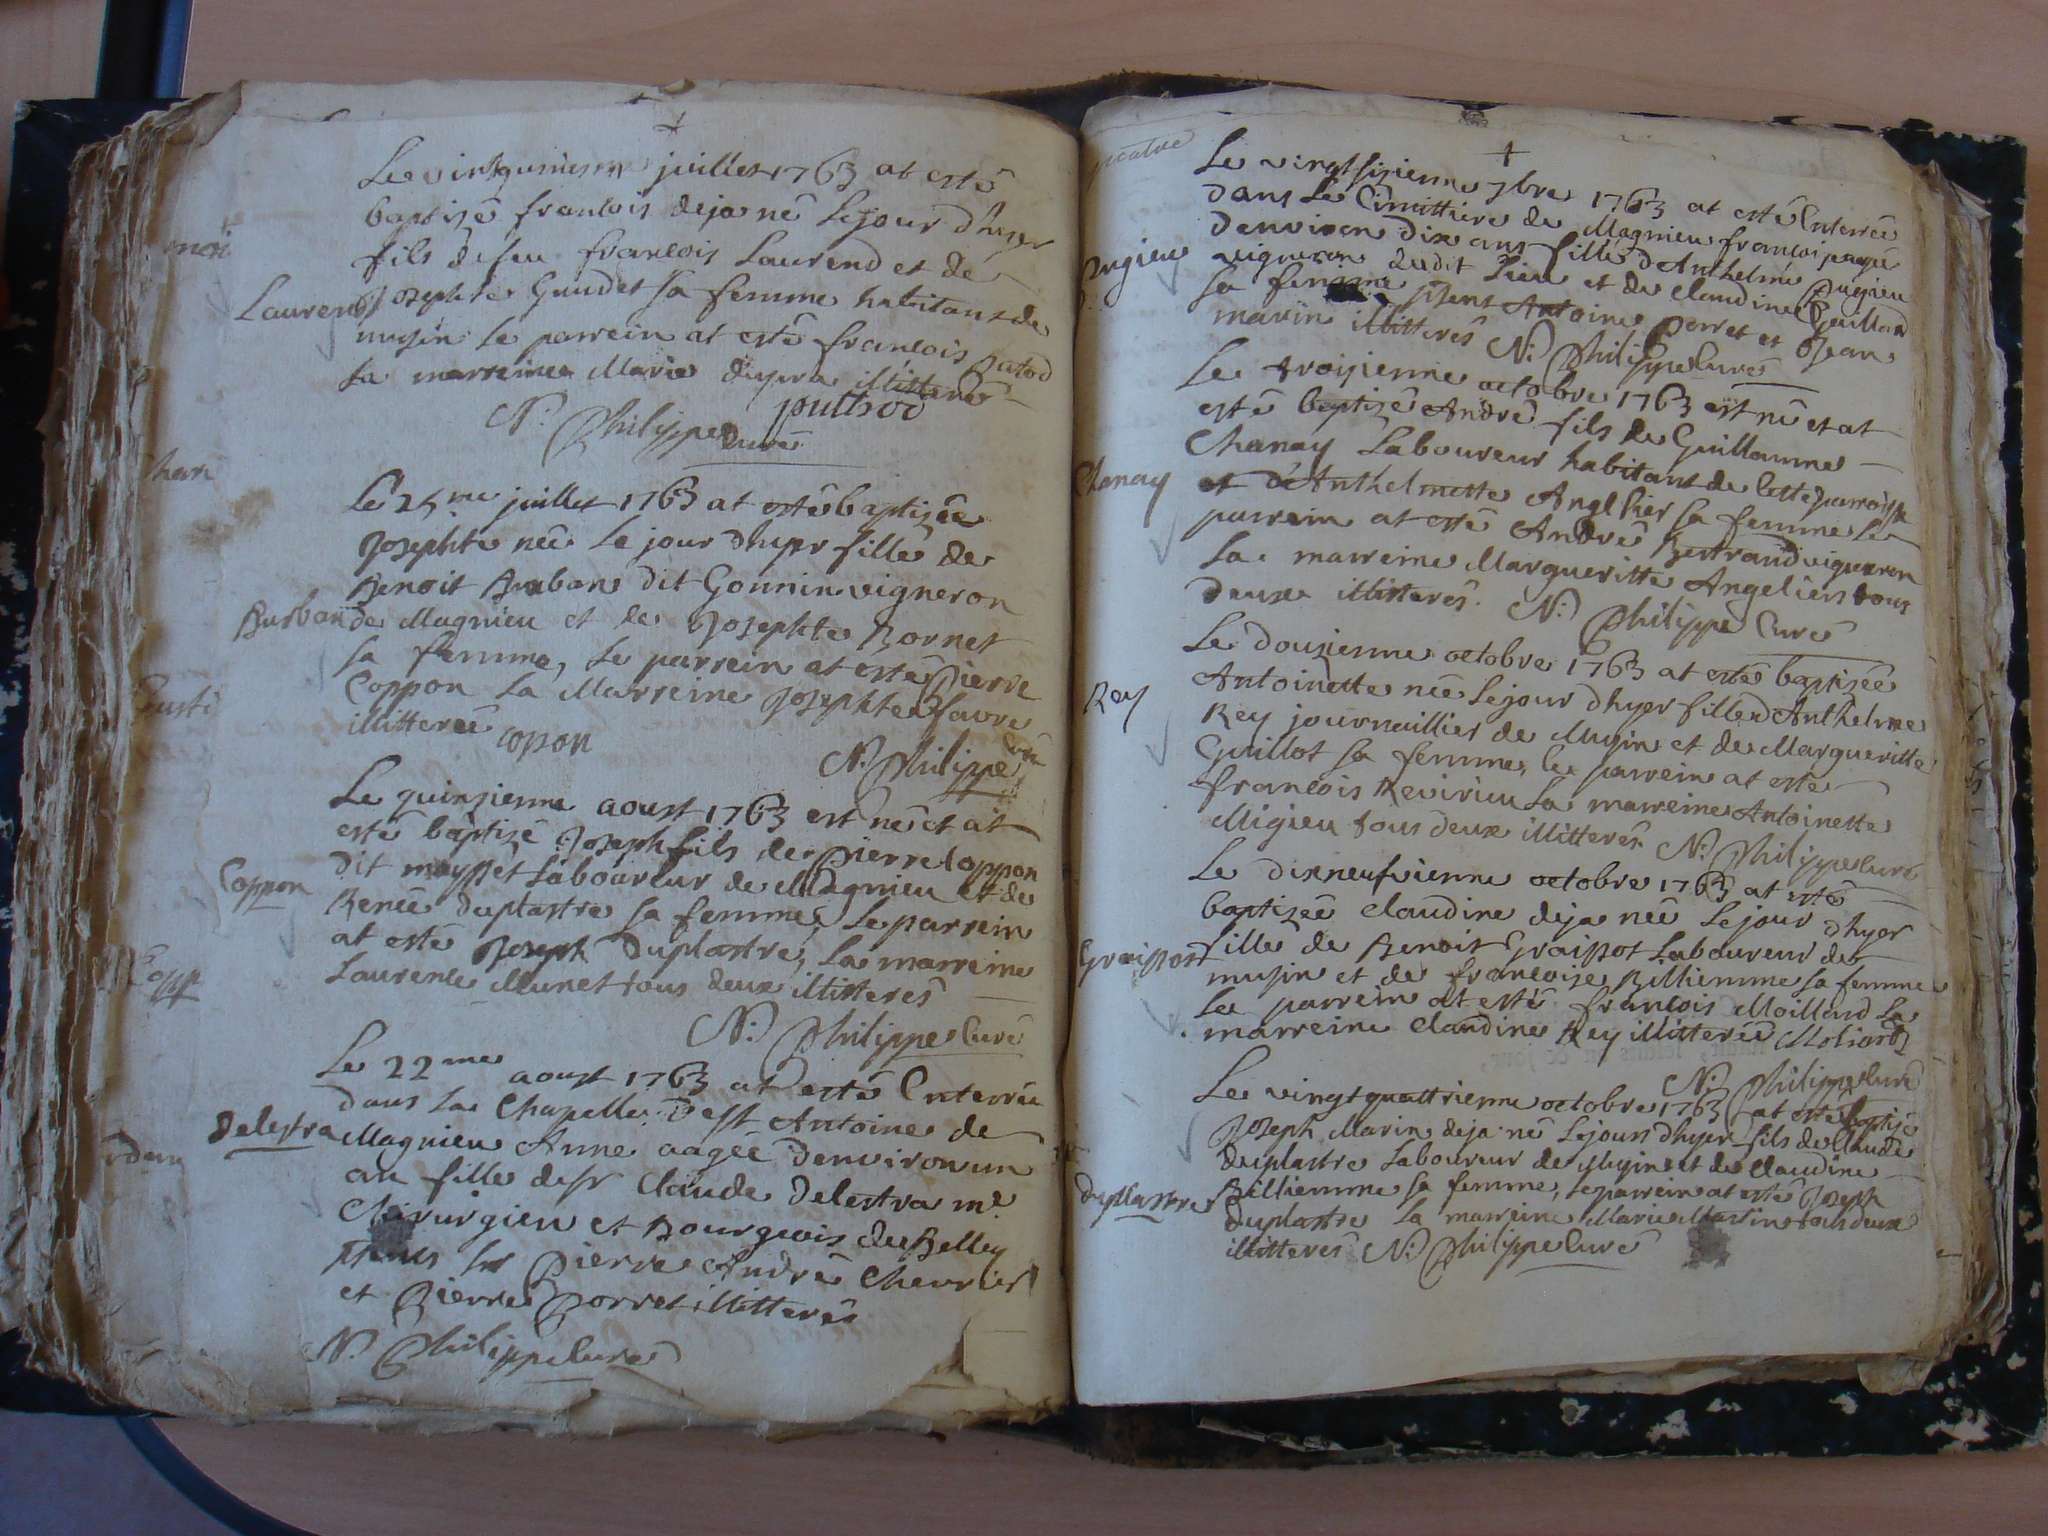 juillet 1763 at esté
baptisé francois deja né le jour d'hyer
fils de feu francois Laurend et de
Laurend Josephte Gaudet sa femme habitans de
musin le parrein at esté francois putod
La marreine Marie dupra illitteré
puthod
N. Philippe Curé
Le 25me juillet 1763 at esté baptisée
Josephte née le jour dhyer fille de
Benoit Burban dit Gonnin vigneron
Burban de Magnieu et de Josephte Bornet
sa femme, le parrein at esté Pierre
Coppon La Marreine Josephte favre
illitterée copon
N. Philippe Curé
Le quinzienne aoust 1763 est né et at
esté baptisé Joseph fils de Pierre Coppon
dit mayssét Laboureur de Magnieu et de
Coppon
Renée duplastre sa femme, Le parrein
at esté Joseph Duplastre, La marreine
Laurence Munet tous deux illitterés
N. Philippe Curé
Le 22me aoust 1763 at esté Enterrée
dans La Chapelle de st Antoine de
Delestra Magnieu Anne aagée denviron un
an fille de sr Claude Delestra me
Chirurgien et Bourgeois de Belley
sr Pierre André Chevrier
et Pierre Porret illitterés
N. Philippe Curé
Le vingtsizienne 7bre 1763 at esté Enterrée
dans Le Cimittiere de Magnieu francoi
denviron dix ans fille d'Anthelme Pugieu
Pugieu vigneron dudit Lieu et de Claudine Guillon
sa femme psent Antoine Porret et Jean
marin illitterés N. Philippe Curé
Le troizienne octobre 1763 est né et at
esté baptisé André fils de Guillaume
Chanay Laboureur habitant de cette parroisse
Chanay et d'Anthelmette Anglhier sa femme le
parrein at esté André Bertrand vigneron
La marreine Margueritte Angeliers tous
deux illitterés. N. Philippe Curé
Le douzienne octobre 1763 at esté baptisée
Antoinette née le jour dhyer fille d'Anthelme
Rey
Rey journaillier de Musin et de Margueritte
Guillot sa femme, le parrein at esté
francois Revirieu La marreine Antoinette
Migieu tous deux illitterés N. Philippe Curé
Le dixneufvienne octobre 1763 at esté
baptizée Claudine deja née Le jour dhyer
fille de Benoit Graissot Laboureur de
Graissot
musin et de francoise Billiemme sa femme
Le parrein at esté francois Moillard La
marreine Claudine Rey illitterée Moliard
N. Philippe Curé
Le vingtquattrienne octobre 1763 at esté baptisé
Joseph Marin deja né Le jour dhyer fils de Claude
duplastre Laboureur de Musin et de Claudine
duplastre Billiemme sa femme, Le parrein at esté Joseph
duplastre La marreine Marie Martin tous deux
illitterés N. Philippe Curé